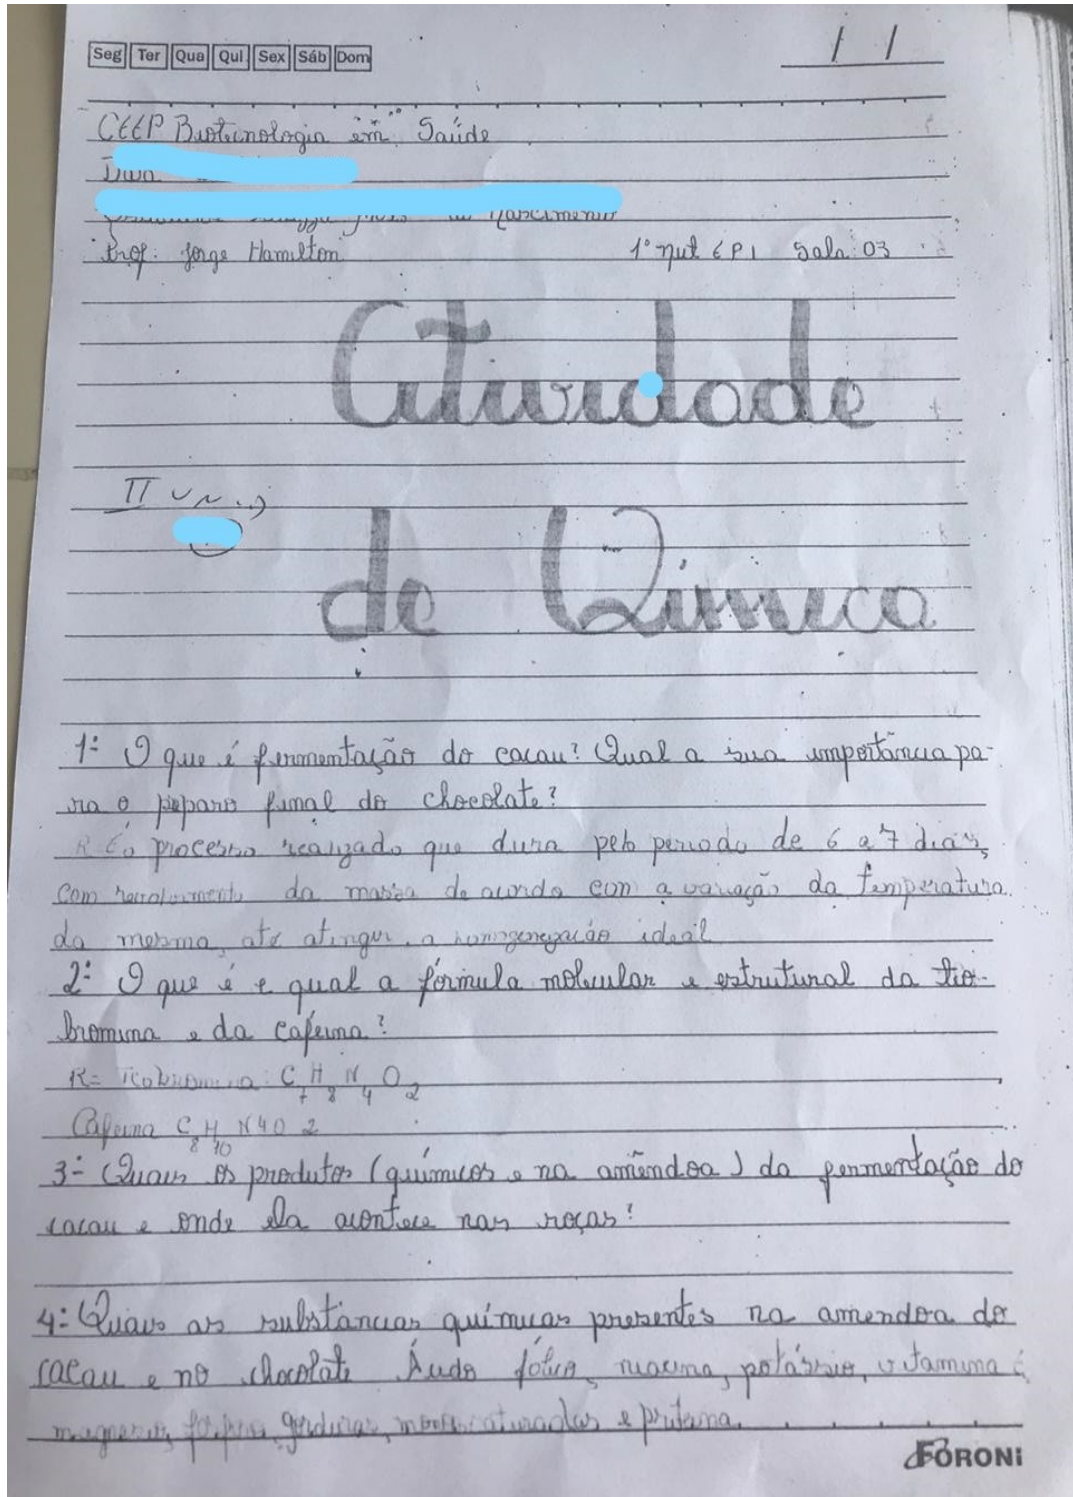 Seg Ter Qua Qui Sex Sáb Dom
/ /
CEEP Biotecnologia em Saúde
nascimento
Prof: Jorge Hamilton 1º nut EPI Sala: 03
Atividade
II
de Química
1º O que é fermentação do cacau? Qual a sua importância pa-
ra o preparo final do chocolate?
R É o processo realizado que dura pelo período de 6 a 7 dias,
com revolvimento da massa de acordo com a variação da temperatura
da mesma, até atingir a homogeneização ideal
2º O que é e qual a fórmula molecular e estrutural da teo-
bromina e da cafeína?
R= C7H8N4O2
Cafeína C8H10N4O2
3º Quais os produtos (químicos e na amêndoa) da fermentação do
cacau e onde ela acontece nas roças?
4º Quais as substâncias químicas presentes na amendoa do
cacau e no chocolate Ácido fólico, niacina, potássio, vitamina
gorduras, e proteina.
FORONI